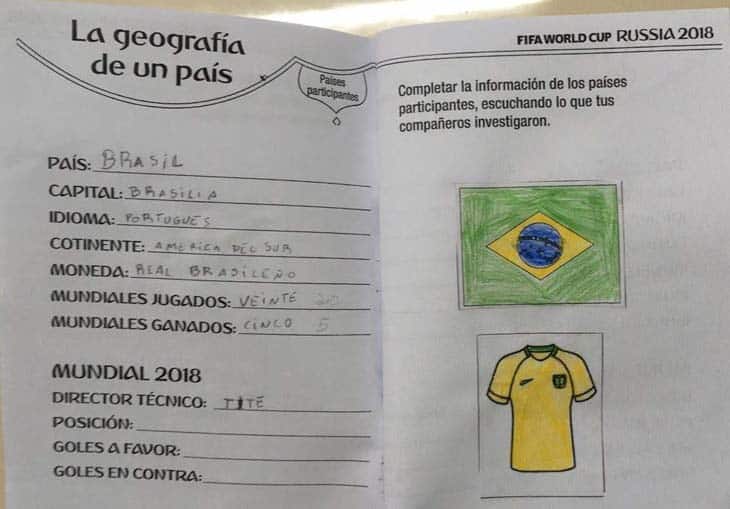 La geografía
de un país
Países
participantes
PAÍS: BRASIL
CAPITAL: BRASILIA
IDIOMA: PORTUGUÉS
COTINENTE: AMERICA DEL SUR
MONEDA: REAL BRASILEÑO
MUNDIALES JUGADOS: VEINTE 20
MUNDIALES GANADOS: CINCO 5
MUNDIAL 2018
DIRECTOR TÉCNICO: TITÉ
POSICIÓN:
GOLES A FAVOR:
GOLES EN CONTRA:
FIFA WORLD CUP RUSSIA 2018
Completar la información de los países
participantes, escuchando lo que tus
compañeros investigaron.